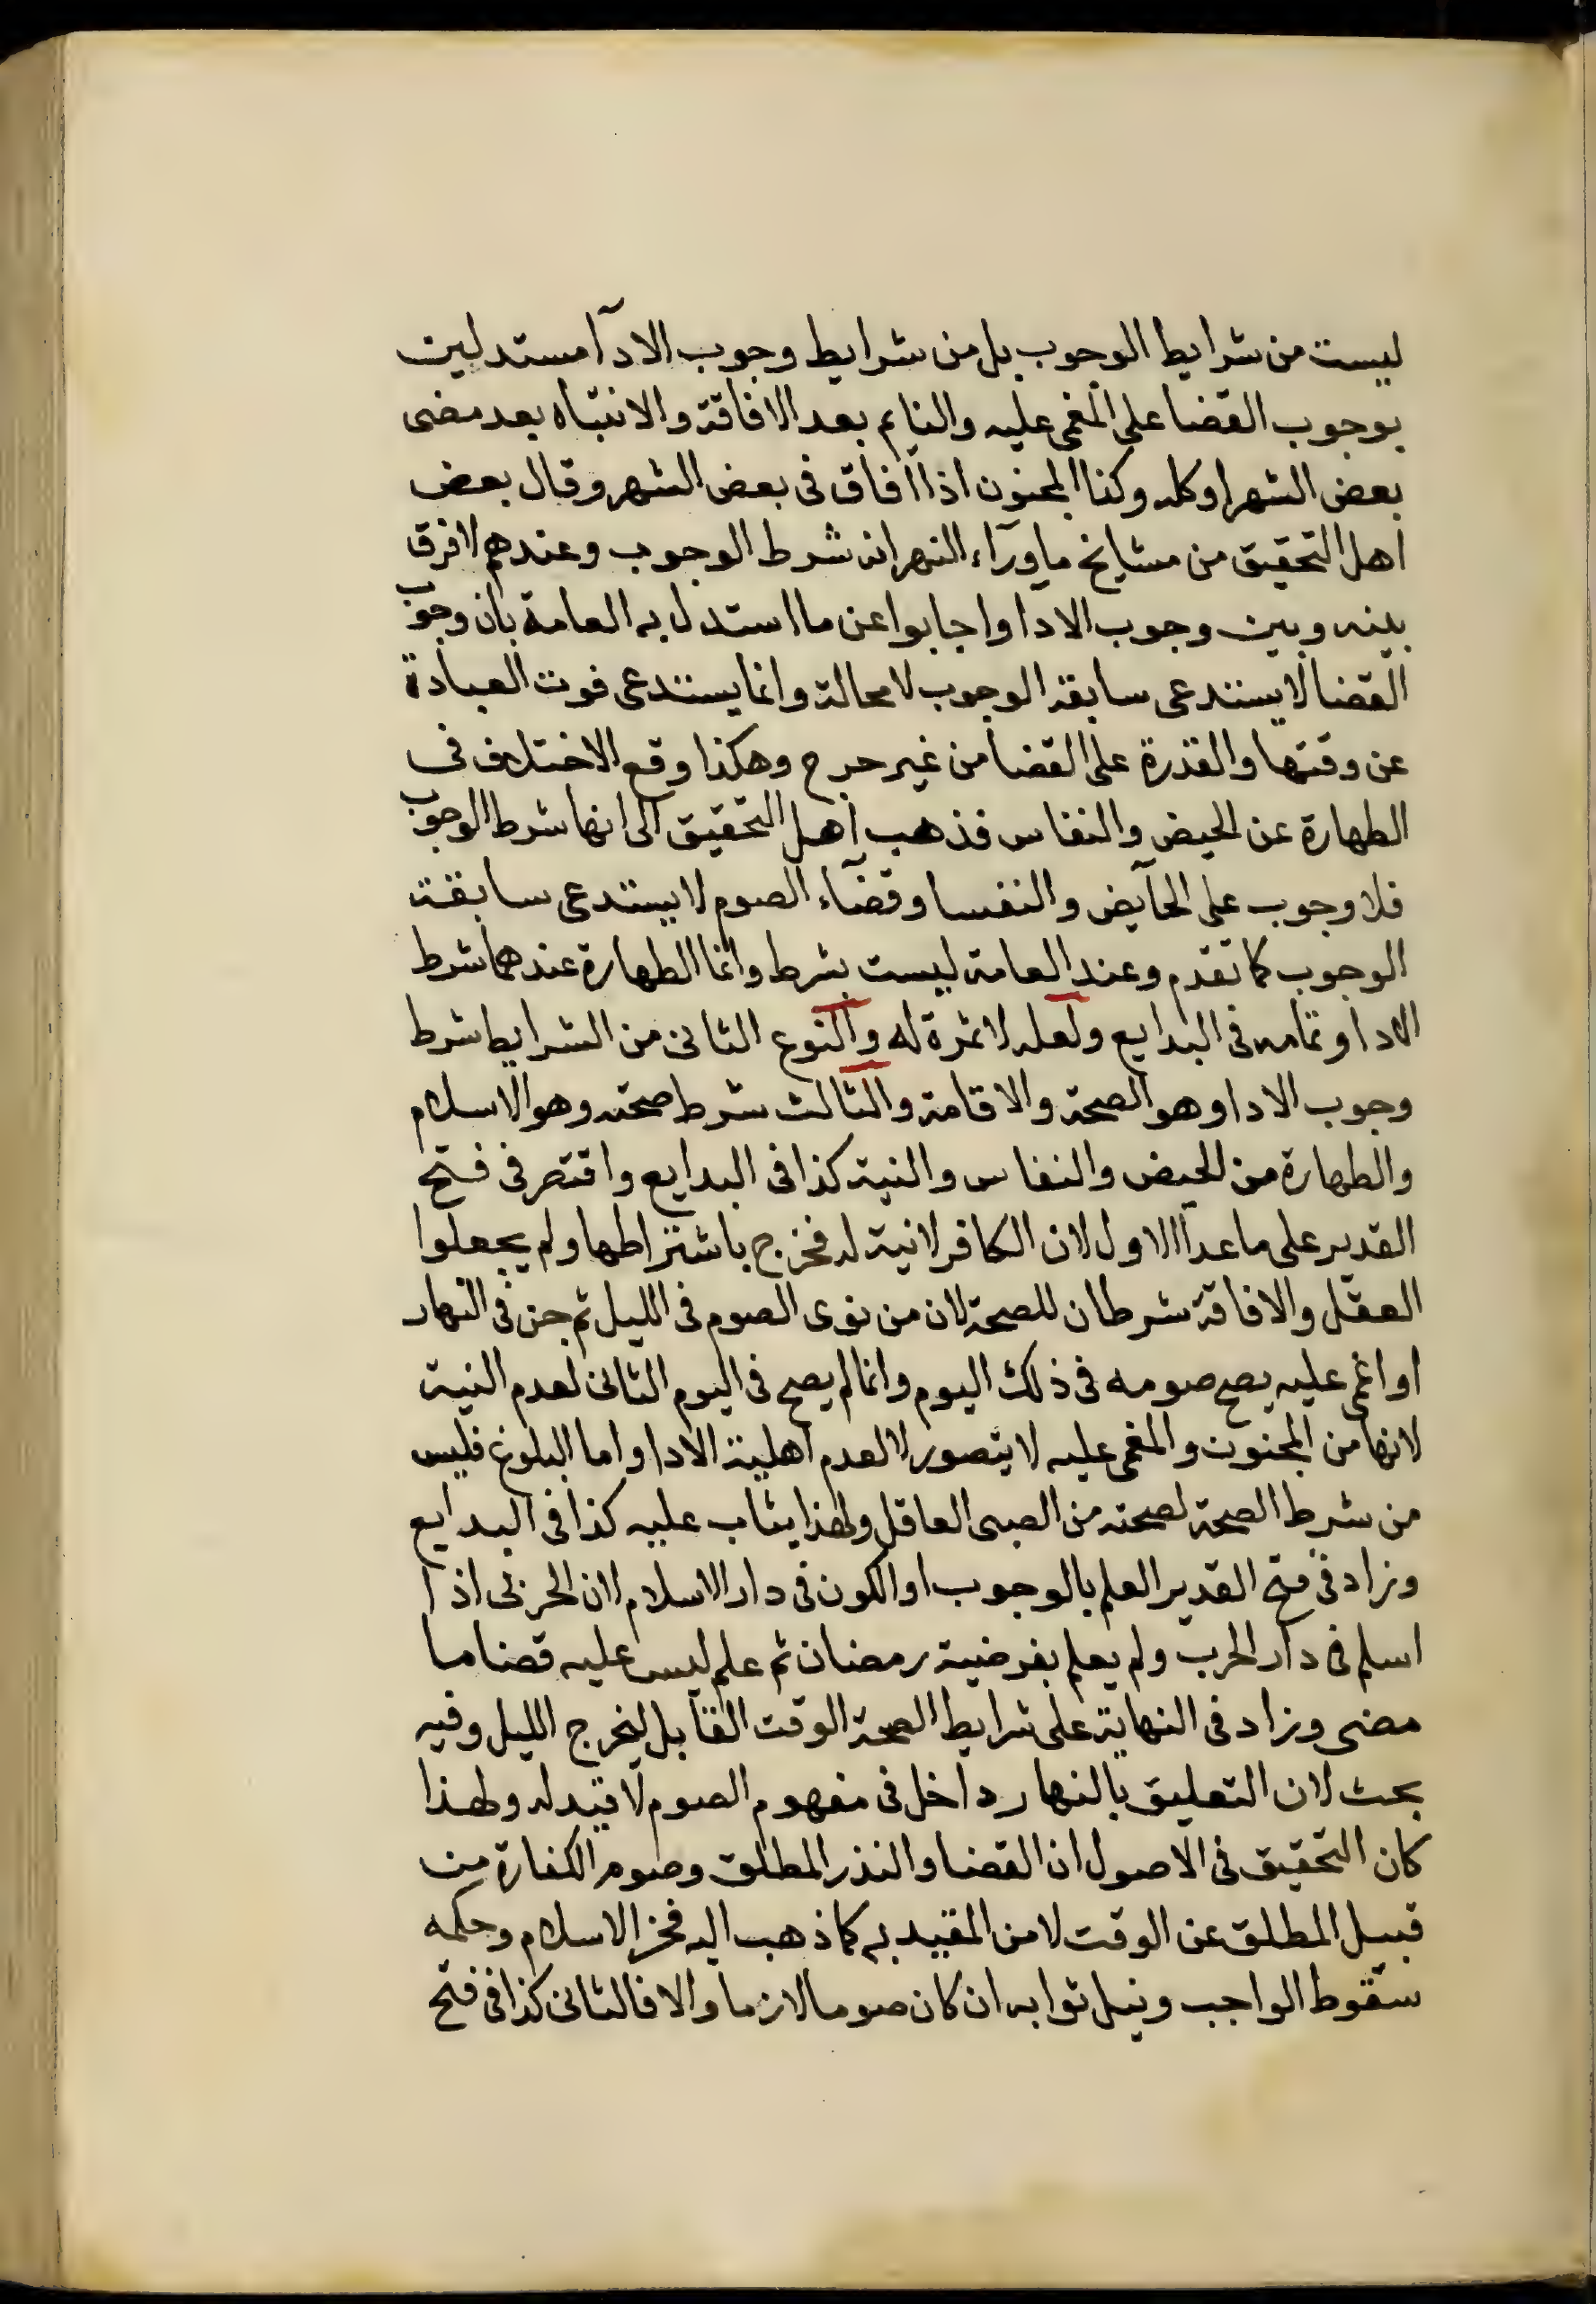 ليست من شرايط الوجوب بل من شرايط وجوب الادآ مستدلين
بوجوب القضا على المغمى عليه والنايم بعد الافاقة والانتباه بعد مضى
بعض الشهر او كله وكذا المجنون اذا افاق فى بعض الشهر وقال بعض
اهل التحقيق من مشايخ ماورآء النهر انه شرط الوجوب وعندهم لا فرق
بينه وبين وجوب الادا واجابوا عن ما استدل به العامة بان وجوب
القضا لا يستدعى سابقة الوجوب لا محالة وانما يستدعى فوت العبادة
عن وقتها والقدرة على القضا من غير حرج وهكذا وقع الاختلاف فى
الطهارة عن الحيض والنفاس فذهب اهل التحقيق الى انها شرط الوجوب
فلا وجوب على الحآيض والنفسا وقضآء الصوم لا يستدعى سابقة
الوجوب كما تقدم وعند العامة ليست بشرط وانما الطهارة عندهما شرط
الادا وتمامه فى البدايع ولعله لا ثمرة له والنوع الثانى من الشرايط شرط
وجوب الادا وهو الصحة والاقامة والثالث شرط صحته وهو الاسلام
والطهارة من الحيض والنفاس والنية كذا فى البدايع واقتصر فى فتح
القدير على ما عدا الاول لان الكافر لا نية له فخرج باشتراطها ولم يجعلوا
العقل والافاقة شرطان للصحة لان من نوى الصوم فى الليل ثم جن فى النهار
او اغمى عليه يصح صومه فى ذلك اليوم وانما لم يصح فى اليوم الثانى لعدم النية
لانها من المجنون والمغمى عليه لا يتصور لا لعدم اهلية الادا واما البلوغ فليس
من شرط الصحة لصحته من الصبى العاقل ولهذا يثاب عليه كذا فى البدايع
وزاد فى فتح القدير العلم بالوجوب او الكون فى دار الاسلام لان الحربى اذا
اسلم فى دار الحرب ولم يعلم بفرضية رمضان ثم علم ليس عليه قضا ما
مضى وزاد فى النهاية على شرايط الصحة الوقت القابل ليخرج الليل وفيه
بحث لان التعليق بالنهار داخل فى مفهوم الصوم لا قيد له ولهذا
كان التحقيق فى الاصول ان القضا والنذر المطلق وصوم الكفارة من
قبيل المطلق عن الوقت لا من المقيد به كما ذهب اليه فخر الاسلام وحكمه
سقوط الواجب ونيل ثوابه ان كان صوما لازما والا فالثانى كذا فى فتح